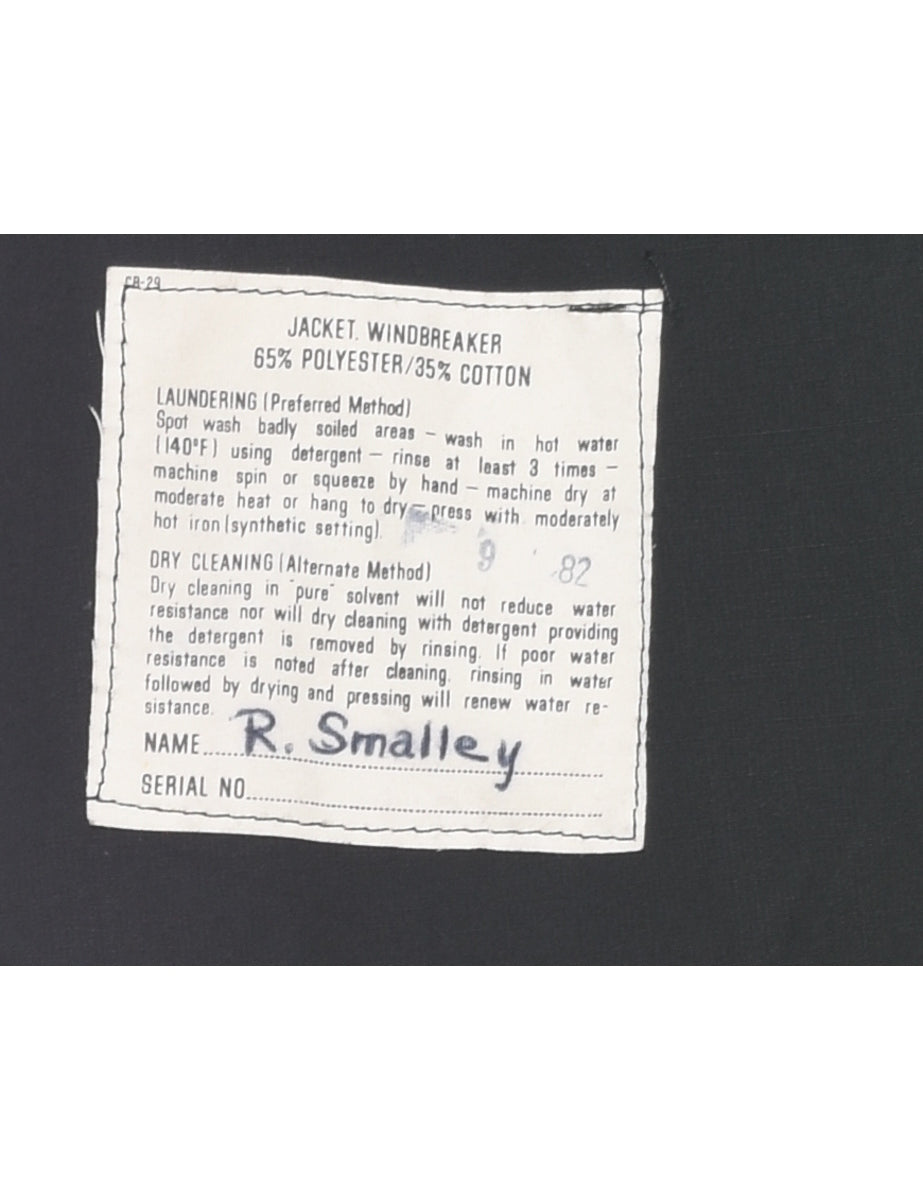 CA-29
JACKET. WINDBREAKER
65% POLYESTER/35% COTTON
LAUNDERING (Preferred Method)
Spot wash badly soiled areas – wash in hot water
(140°F) using detergent – rinse at least 3 times –
machine spin or squeeze by hand – machine dry at
moderate heat or hang to dry – press with moderately
hot iron (synthetic setting).
9 82
DRY CLEANING (Alternate Method)
Dry cleaning in "pure" solvent will not reduce water
resistance nor will dry cleaning with detergent providing
the detergent is removed by rinsing. If poor water
resistance is noted after cleaning, rinsing in water
followed by drying and pressing will renew water re-
sistance.
NAME R. Smalley
SERIAL NO.